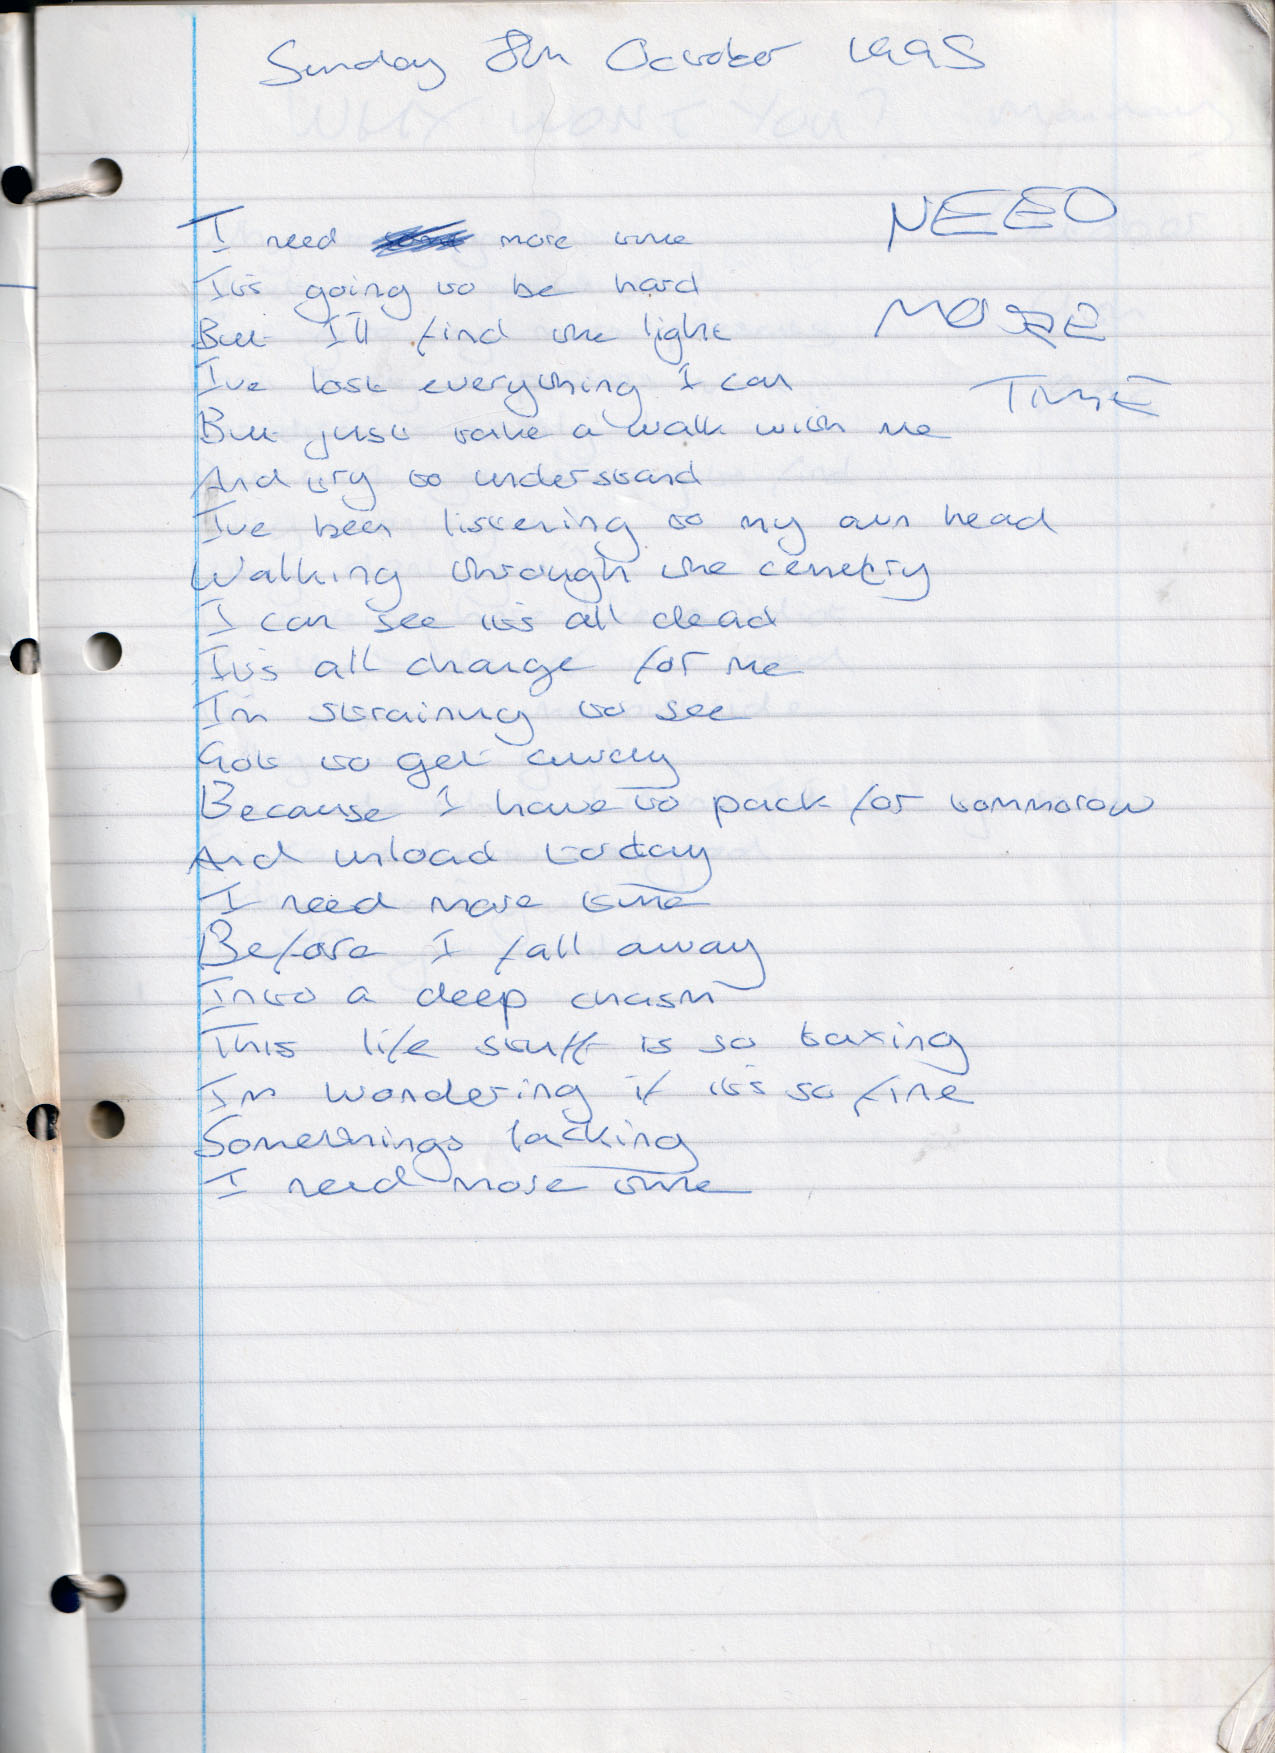 Sunday 8th October 1995
NEED
MORE
TIME
I need more time
Its going to be hard
But I'll find the light
I've lost everything I can
But just take a walk with me
And try to understand
I've been listening to my own head
Walking through the cemetry
I can see its all dead
Its all change for me
Im straining to see
Got to get away
Because I have to pack for tommorow
And unload today
I need more time
Before I fall away
Into a deep chasm
This life stuff is so taxing
Im wondering if its so fine
Somethings lacking
I need more time